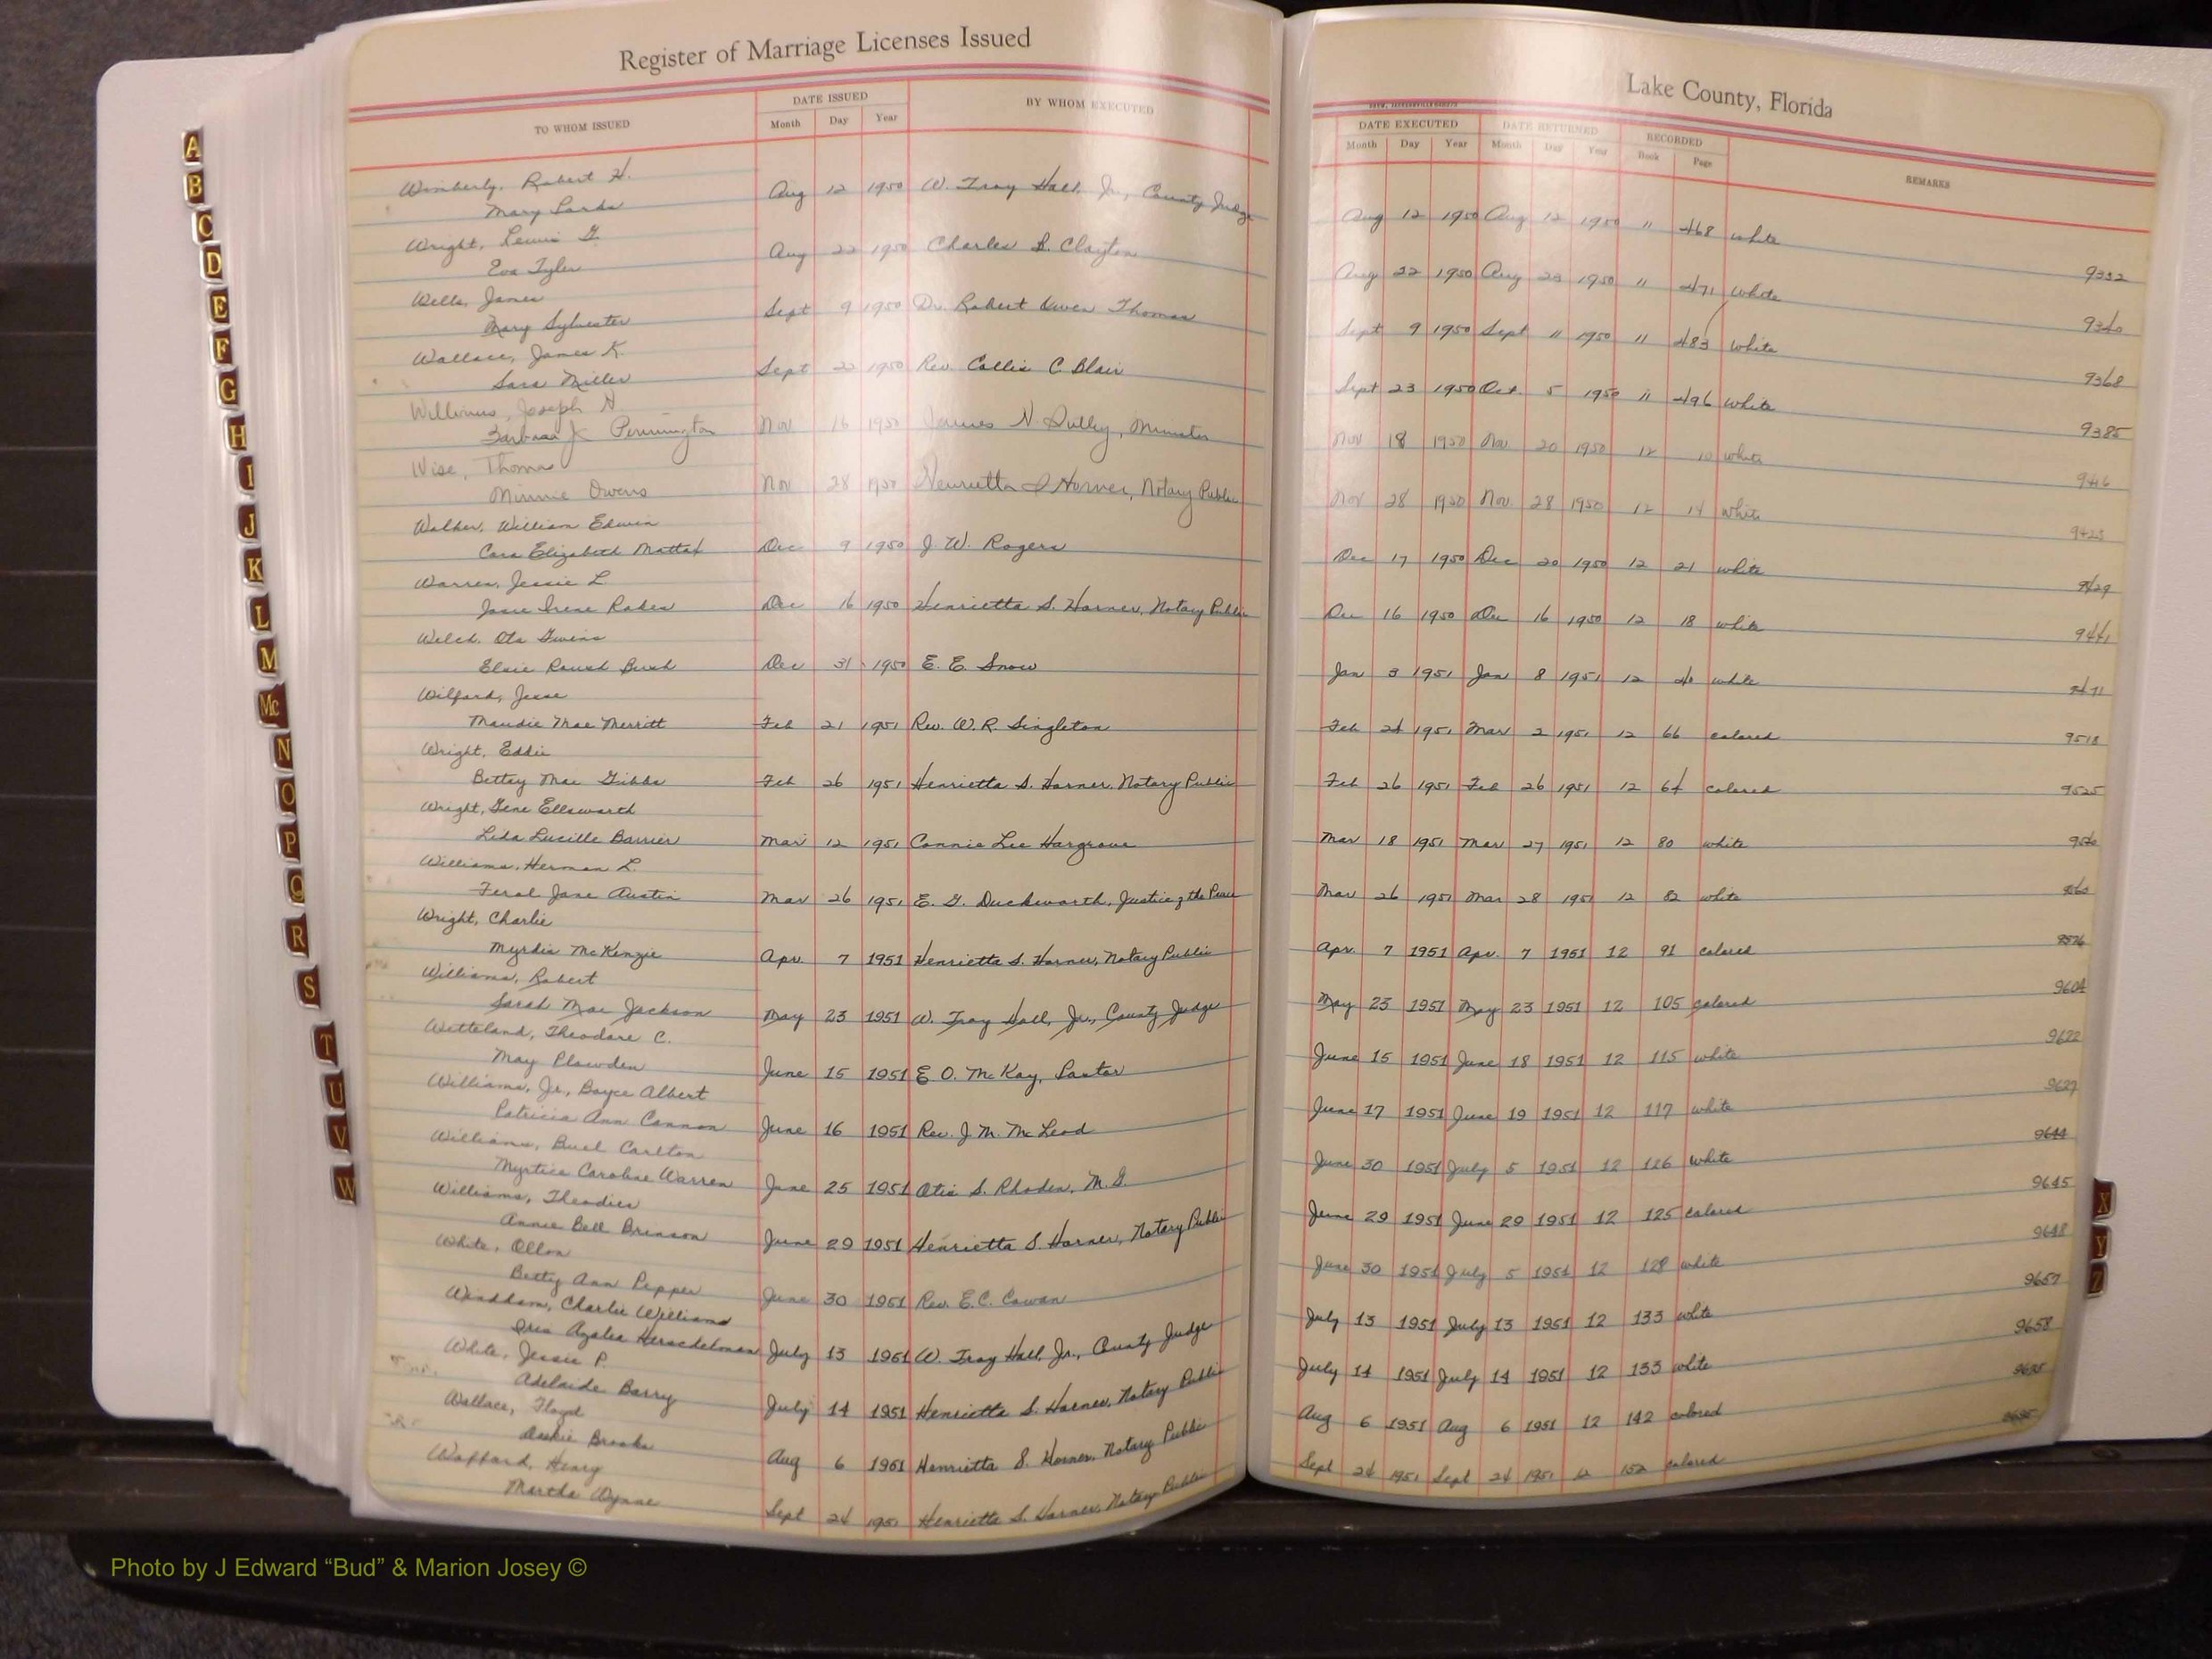 Register of Marriage Licenses Issued
TO WHOM ISSUED DATE ISSUED BY WHOM EXECUTED
Month Day Year
Wimberly, Robert H.
Mary Aug 12 1950 W. Troy Hall, Jr., County Judge
Wright, Lewis G.
Eva Tyler Aug 22 1950 Charles B. Clayton
Wells, James
Mary Sylvester Sept 9 1950 Dr. Robert Owen Thomas
Wallace, James K.
Sara Miller Sept 22 1950 Rev. Collis C. Blair
Williams, Joseph H.
Barbara K Pennington Nov 16 1950 James N. Minister
Wise, Thomas
Minnie Owens Nov 28 1950 Henrietta S Horner, Notary Public
Walker, William Edwin
Cora Elizabeth Dec 9 1950 J. W. Rogers
Warren, Jessie L.
Irene Dec 16 1950 Henrietta S. Horner, Notary Public
Welch, Ota
Elsie Bush Dec 31 1950 E. E. Snow
Wilford, Jesse
Maudie Mae Merritt Feb 21 1951 Rev. W. R. Singleton
Wright, Eddie
Bettey Mae Gibbs Feb 26 1951 Henrietta S. Horner, Notary Public
Wright, Gene Ellsworth
Lida Lucille Barrier Mar 12 1951 Connie Lee Hargrove
Williams, Herman L.
Feral Jane Austin Mar 26 1951 E. G. Duckworth, Justice of the Peace
Wright, Charlie
Myrdis McKenzie Apr. 7 1951 Henrietta S. Horner, Notary Public
Williams, Robert
Sarah Mae Jackson May 23 1951 W. Troy Hall, Jr., County Judge
Witteland, Theodore C.
May Plowden June 15 1951 E. O. McKay, Pastor
Williams, Jr., Boyce Albert
Patricia Ann Cannon June 16 1951 Rev. J. M. McLeod
Williams, Buel Carlton
Myrtice Caroline Warren June 25 1951 Otis S. Rhoden, M.G.
Williams, Theodies
Annie Bell Brinson June 29 1951 Henrietta S. Horner, Notary Public
White, Ollon
Betty Ann Pepper June 30 1951 Rev. E.C. Cowan
Windham, Charlie Williams
Iris Azalea July 13 1951 W. Troy Hall, Jr., County Judge
White, Jessie P.
Adelaide Barry July 14 1951 Henrietta S. Horner, Notary Public
Wallace, Floyd
Brooks Aug 6 1951 Henrietta S. Horner, Notary Public
Wofford, Henry
Martha Wynne Sept 24 1951 Henrietta S. Horner, Notary Public
Lake County, Florida
DATE EXECUTED DATE RETURNED RECORDED REMARKS
Month Day Year Month Day Year Book Page
Aug 12 1950 Aug 12 1950 " 468 white 9332
Aug 22 1950 Aug 23 1950 " 471 white 9340
Sept 9 1950 Sept 11 1950 11 483 white 9368
Sept 23 1950 Oct. 5 1950 11 496 white 9385
Nov 18 1950 Nov 20 1950 12 10 white 9416
Nov 28 1950 Nov. 28 1950 12 14 white 9423
Dec 17 1950 Dec 20 1950 12 21 white 9429
Dec 16 1950 Dec 16 1950 12 18 white 9441
Jan 3 1951 Jan 8 1951 12 40 white
Feb 24 1951 Mar 2 1951 12 66 colored 9518
Feb 26 1951 Feb 26 1951 12 64 colored 9525
Mar 18 1951 Mar 27 1951 12 80 white
Mar 26 1951 Mar 28 1951 12 82 white
Apr. 7 1951 Apr. 7 1951 12 91 colored 9576
May 23 1951 May 23 1951 12 105 colored 9604
June 15 1951 June 18 1951 12 115 white 9622
June 17 1951 June 19 1951 12 117 white 9627
June 30 1951 July 5 1951 12 126 white 9644
June 29 1951 June 29 1951 12 125 colored 9645
June 30 1951 July 5 1951 12 128 white 9648
July 13 1951 July 13 1951 12 133 white 9657
July 14 1951 July 14 1951 12 133 white 9658
Aug 6 1951 Aug 6 1951 12 142 colored
Sept 24 1951 Sept 24 1951 12 152 colored
A
B
C
D
E
F
G
H
I
J
K
L
M
Mc
N
O
P
Q
R
S
T
U
V
W
X
Y
Z
Photo by J Edward “Bud” & Marion Josey ©